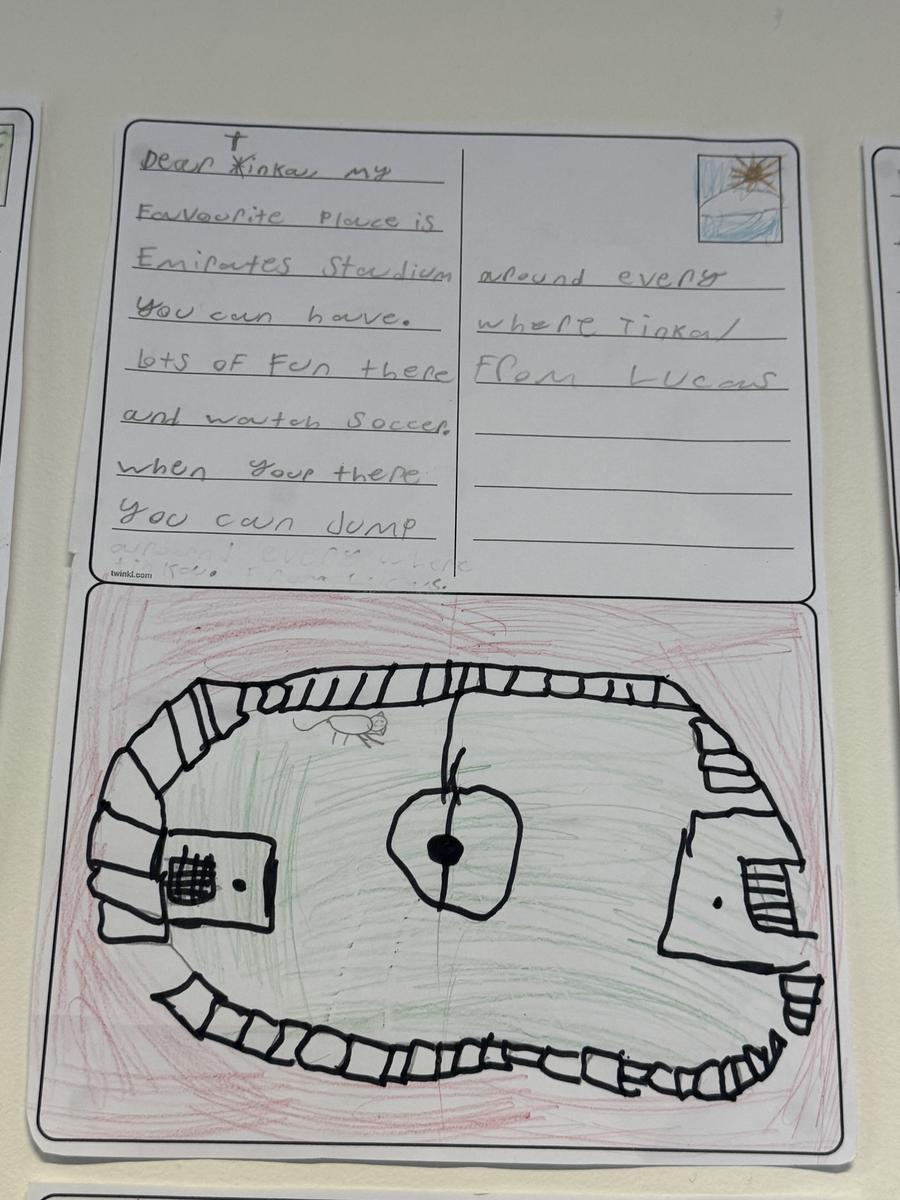 T
Dear Tinka, my
Favourite Place is
Emirates Stadium
You can have.
lots of Fun there
and watch Soccer.
when your there
You can Jump
around every where
tinka. From Lucas.
twinkl.com
around every
where Tinka/
From Lucas